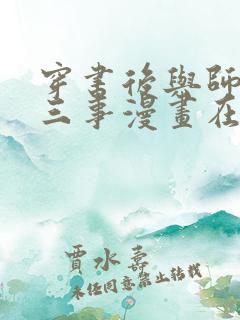 穿書後與師
三事漫畫在
賈水壽
未任同意禁止转载